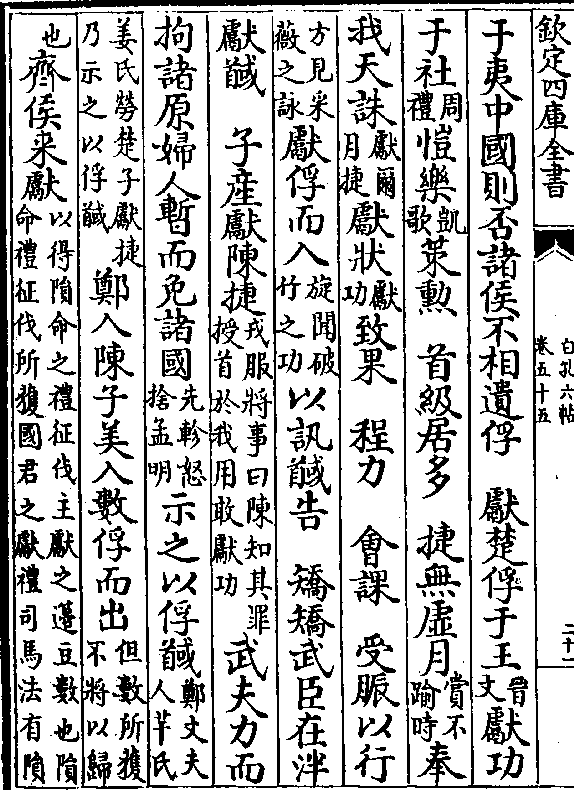 欽定四庫全書
白孔六帖
卷五十五
二十一
于夷中國則否諸侯不相遺俘 獻楚俘于王晉文獻功
于社周禮愷樂凱歌策勲 首級居多 捷無虛月賞不踰時奉
我天誅獻爾月捷獻狀獻功致果 程力 會課 受脤以行
方見采薇之詠獻俘而入旋聞破竹之功以訊馘告 矯矯武臣在泮
獻馘 子産獻陳捷戎服將事曰陳知其罪授首於我用敢獻功武夫力而
拘諸原婦人暫而免諸國先軫怒捨孟明示之以俘馘鄭文夫人芊氏
姜氏勞楚子獻捷乃示之以俘馘鄭入陳子美入數俘而出但數所獲不將以歸
也齊侯来獻以得隕命之禮征伐主獻之籩豆數也隕命禮征伐所獲國君之獻禮司馬法有隕